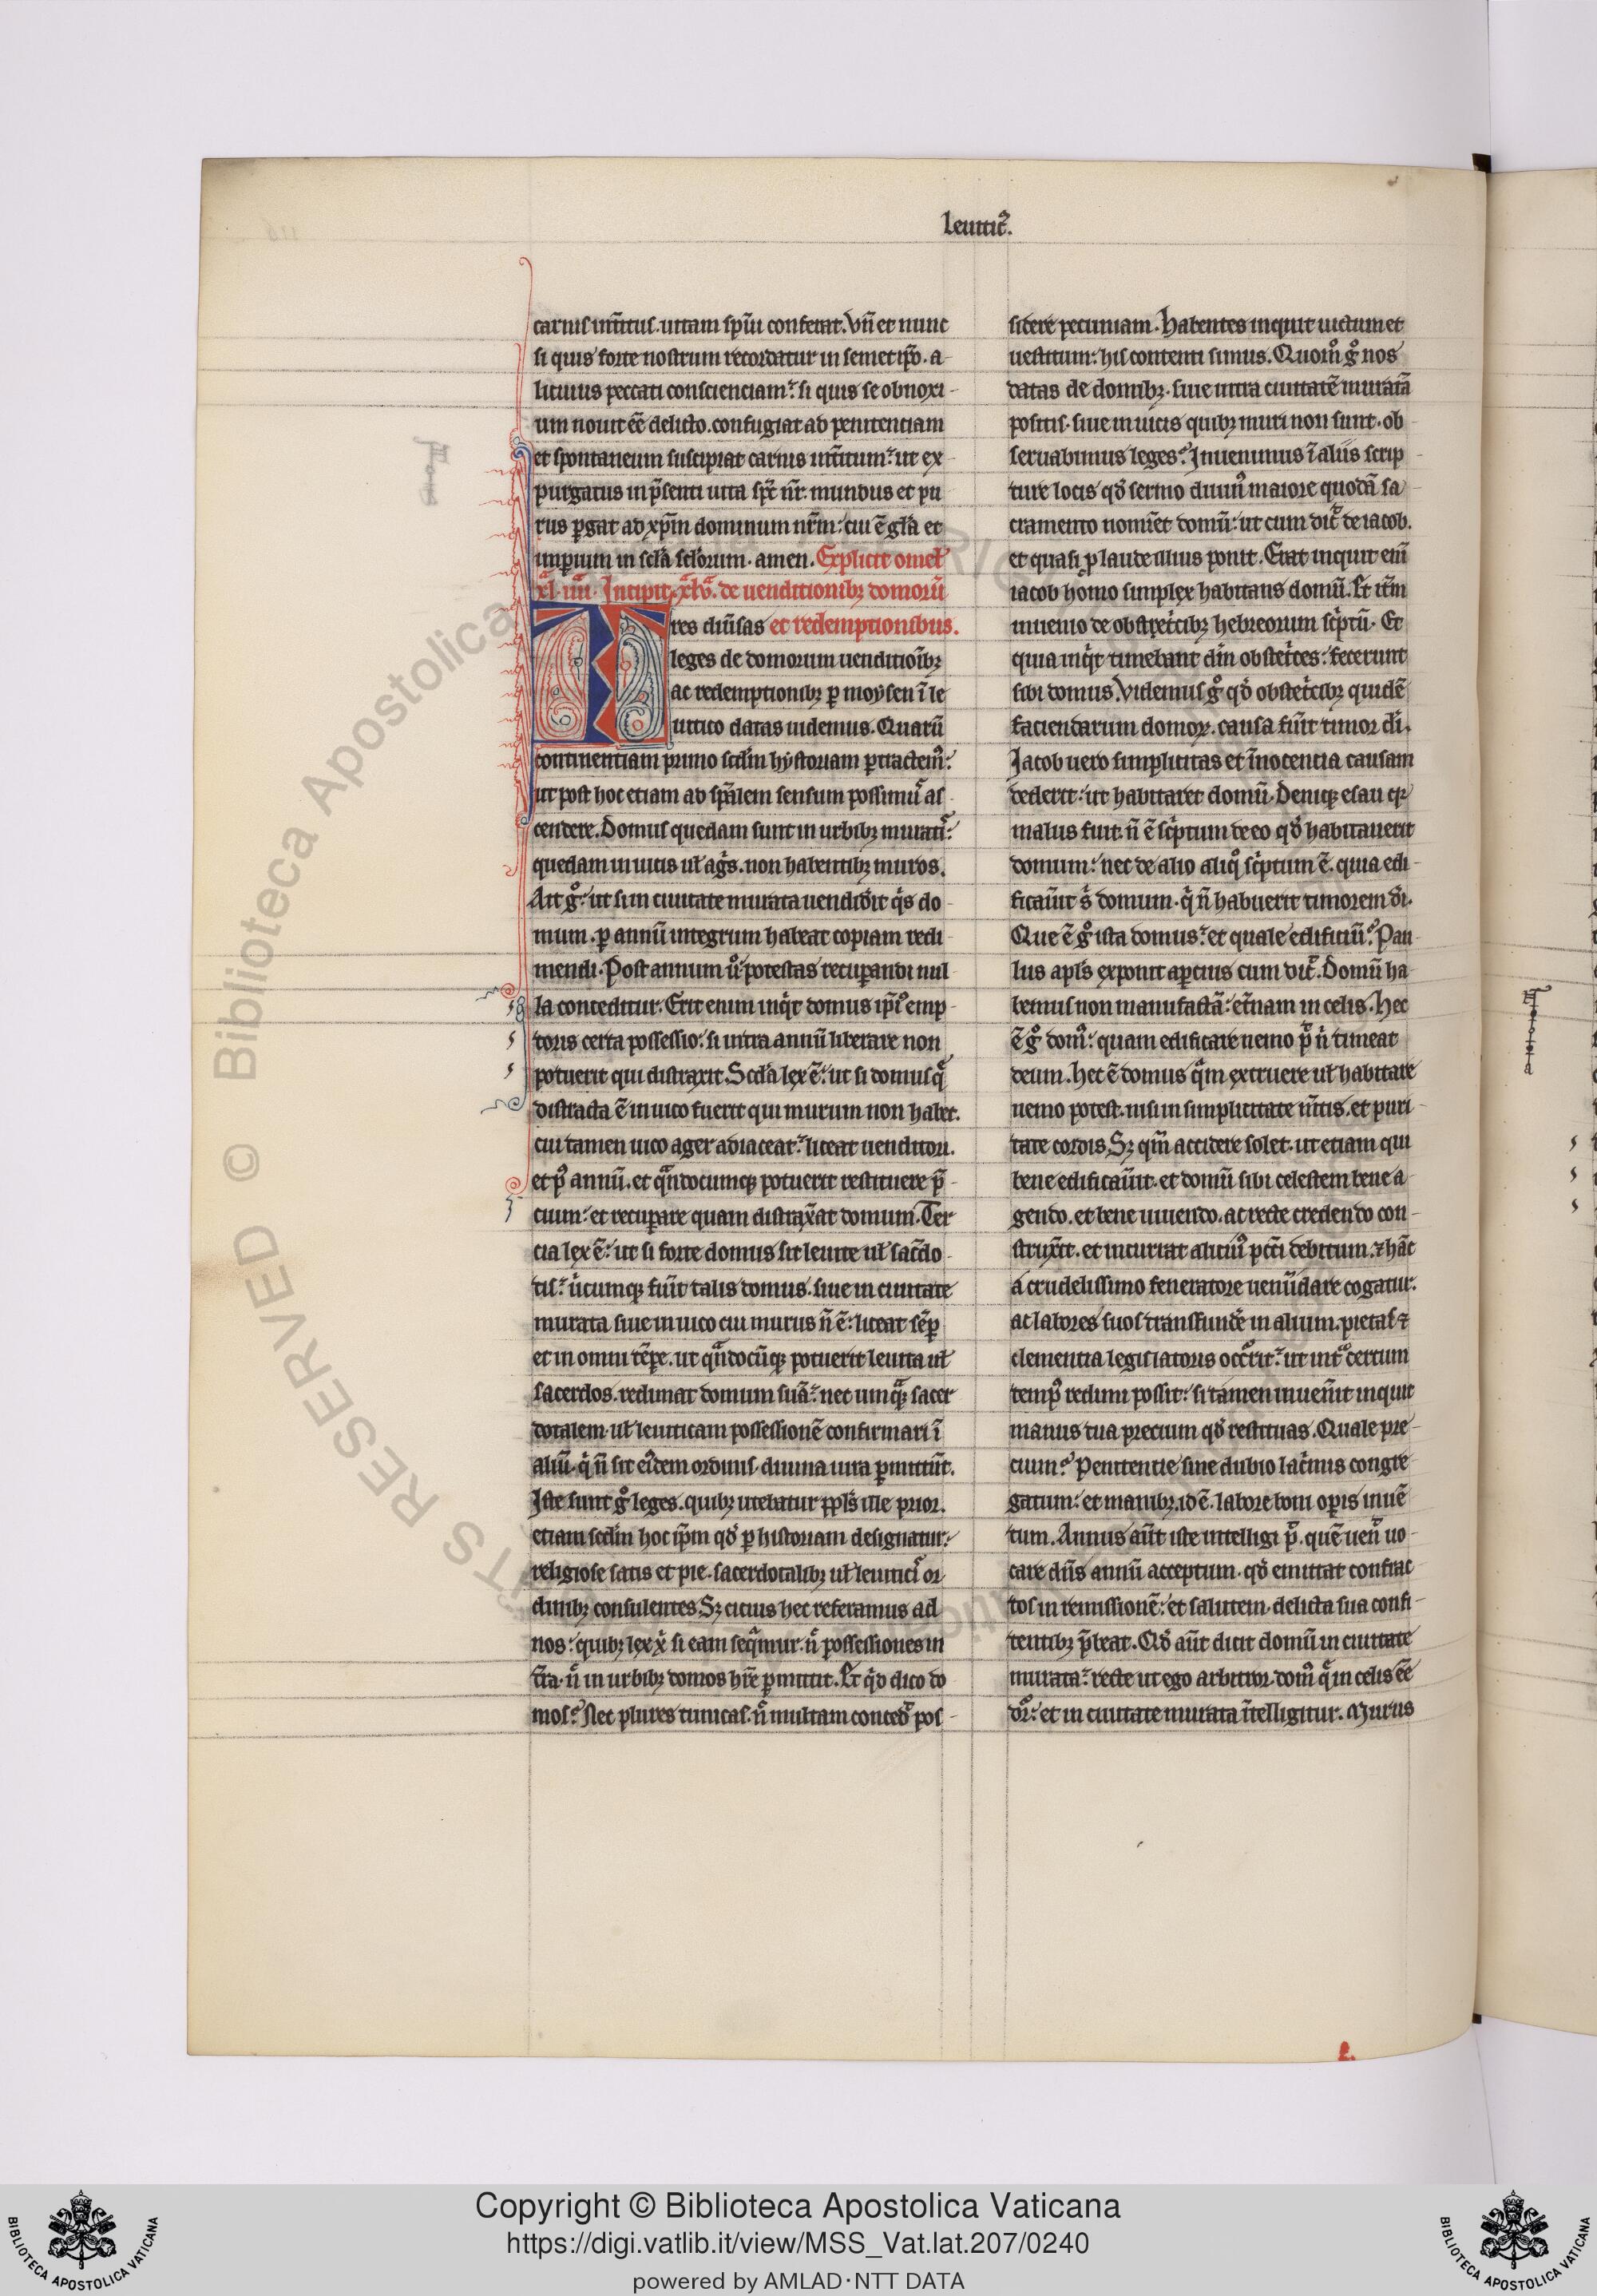 leuitic᷒.
carnis int̅itus. uitam sp̅ui conferat. Vn̅ et nunc
si quis forte nostrum recordatur in semet ip̅o. a-
licuius peccati conscienciam: si quis se obnoxi-
um nouit ee̅ delicto. confugiat ad penitentiam
et spontaneum suscipiat carnis int̅itum: ut ex-
purgatus in p̅senti uita sp̅c n̅r. mundus et pu
rus p̲gat ad xp̅m dominum nr̅m: cui e̅ gl̅a et
imp̲ium in sc̅la sc̅lorum. amen. Explicit omel̅
xl. iiii. Incipit. xlv. de uenditionibꝫ domoru̅
Tres diu̅sas et redemptionibus.
leges de domorum uenditioi̅bꝫ
ac redemptionibꝫ p̲ moysen i̅ le
uitico datas uidemus. Quaru̅
continentiam primo scd̅m hystoriam p̲tractem᷒:
ut post hoc etiam ad sp̅alem sensum possimus as-
cendere. Domus quedam sunt in urbibꝫ muratis:
quedam in uicis ul̅ ag̅s. non habentibꝫ muros.
Ait gͦ: ut siin ciuitate murata uendid̅it qͥs do-
mum. p̲ annu̅ integrum habeat copiam redi-
mendi. Post annum uͦ potestas recup̲andi nul
la conceditur. Erit enim inqͥt domus ip̅i᷒ emp-
toris certa possessio: si intra annu̅ liberare non
potuerit qui distraxit. Scd̅a lex e̅: ut si domus qͣ
distracta e̅ in uico fuerit qui murum non habet.
cui tamen uico ager adiaceat: liceat uenditori.
et p᷒ annu̅. et qͣndocumqꝫ potuerit restituere p̅-
cium: et recup̲are quam distrax̅at domum. Ter
cia lex e̅: ut si forte domus sit leuite ul̅ sac̅do-
tis: uͥcumqꝫ fu̅it talis domus. siue in ciuitate
murata siue in uico cui murus n̅ e̅: liceat se̅p̲
et in omni te̅p̲e. ut qͣndocu̅qꝫ potuerit leuita ul̅
sacerdos. redimat domum sua̅: nec umqͣꝫ sacer
dotalem ul̅ leuiticam possessione̅ confirmari i̅
aliu̅. qͥ n̅ sit ei᷒dem ordinis. diuina iura p̲mittu̅t.
Iste sunt gͦ leges. quibꝫ utebatur pp̅ls ille prior.
etiam scd̅m hoc ip̅m qd̅ p̲ historiam designatur:
religiose satis et pie. sacerdotalibꝫ ul̅ leuitici᷒ or-
dinibꝫ consulentes. Sꝫ citius hec referamus ad
nos: quibꝫ lex xͥ si eam seqͣmur. nͨ possessiones in
t̅ra. nͨ in urbibꝫ domos hr̅e p̲mittit. Et qͥd dico do
mos? Nec plures tunicas. nͨ multam conced᷒ pos-
sidere pecuniam. Habentes inquit uictum et
uestitum: his contenti simus. Quom̊ gͦ nos
datas de domibꝫ. siue intra ciuitate̅ murata̅
positis. siue in uicis quibꝫ muri non sunt. ob-
seruabimus leges? Inuenimus i̅ aliis scrip-
ture locis qd̅ sermo diuin᷒ maiore quoda̅ sa-
cramento nomi̅et domu̅: ut cum dic̅ de iacob.
et quasi p̲ laude illius ponit. Erat inquit eni̅
iacob homo simplex habitans domu̅. Et it̅m
inuenio de obstetͥcibꝫ hebreorum scͥptu̅. Et
quia inqͥt timebant dn̅m obstetͥces: fecerunt
sibi domus. Videmus gͦ qd̅ obstetͥcibꝫ quide̅
faciendarum domoꝝ. causa fu̅it timor di̅.
Iacob uero simplicitas et i̅nocentia causam
dederit: ut habitaret domu̅. Deniqꝫ esau qꝛ
malus fuit. n̅ e̅ scͥptum de eo qd̅ habitauerit
domum: nec de alio aliqͦ scͥptum e̅. quia edi-
ficau̅it sͥ domum. qͥ n̅ habuerit timorem di̅.
Que e̅ gͦ ista domus: et quale edificiu̅? Pau-
lus apl̅s exponit ap̲cius cum dic̅. Domu̅ ha-
bemus non manufacta̅: et̅nam in celis. Hec
e̅ gͦ dom᷒: quam edificare nemo p̅t n̅ timeat
deum. Hec e̅ domus qͣm extruere ul̅ habitare
nemo potest. nisi in simplicitate m̅tis. et puri-
tate cordis. Sꝫ qm̅ accidere solet. ut etiam qui
bene edificau̅it. et domu̅ sibi celestem bene a-
gendo. et bene uiuendo. ac recte credendo con-
strux̅it. et incuriat alicui᷒ pcc̅i debitum. ⁊ ha̅c
a crudelissimo feneratore uenu̅dare cogatur.
ac labores suos transfunde̅ in alium. pietas ⁊
clementia legislatoris occ̅rit: ut int̅ certum
temp᷒ redimi possit: si tamen inuen̅it inquit
manus tua precium qd̅ restituas. Quale pre-
cium? Penitentie sine dubio lacͥmis congre-
gatum: et manibꝫ. id e̅. labore boni op̲is inue̅
tum. Annus au̅t iste intelligi p̅t. que̅ uen̅ uo-
care dn̅s annu̅ acceptum. qd̅ emittat confrac
tos in remissione̅: et salutem. delicta sua confi-
tentibꝫ p̅beat. Qd̅ au̅t dicit domu̅ in ciuitate
murata: recte ut ego arbitror. dom᷒ qͣ in celis ee̅
dr̅: et in ciuitate murata i̅telligitur. Murus
Copyright © Biblioteca Apostolica Vaticana
https://digi.vatlib.it/view/MSS_Vat.lat.207/0240
powered by AMLAD·NTT DATA
BIBLIOTECA APOSTOLICA VATICANA
BIBLIOTECA APOSTOLICA VATICANA